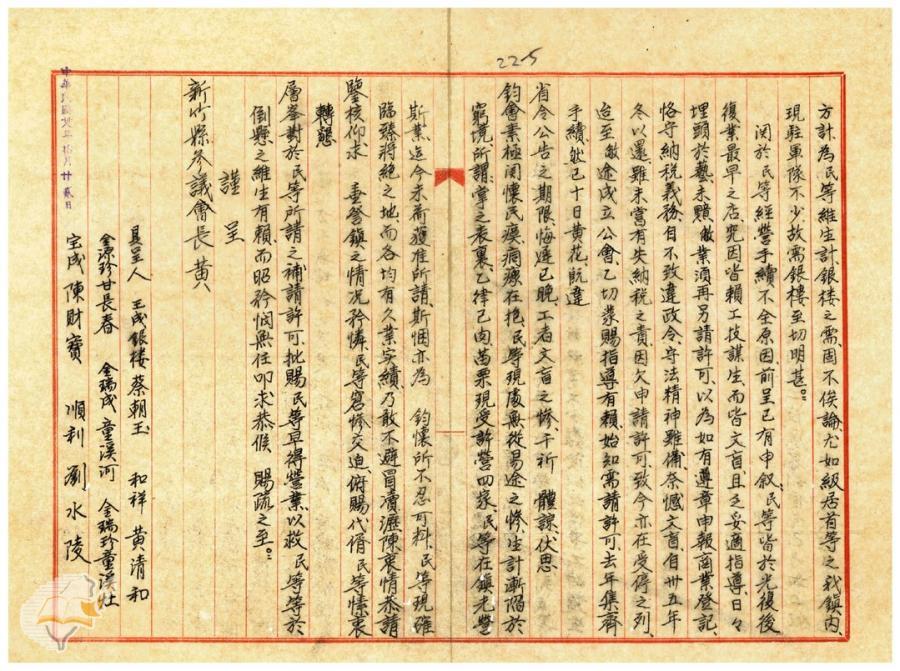 22-5
方計、為民等維生計、銀楼之需、固不俟論、尤如級居首等之我鎮内、
現駐軍隊不少、故需銀楼、至切明甚。
関於民等経營手續不全原因、前呈已有申叙、民等皆於光復後
復業最早之店、究因皆賴工技謀生、而皆文盲、且乏妥適指導、日々
埋頭於藝、未賴敝業須再另請許可、以為如有遵章申報商業登記、
恪守納税義務、自不致違政令、守法精神雖備、奈憾文盲、自卅五年
冬以還、雖未嘗有失納税之責、因欠申請許可、致今亦在受停之列、
迨至敝途成立公會、乙切蒙賜指導有賴、始知需請許可、去年集齊
手續、然已十日黄花、既違
省令公告之期限、悔遲已晚、工者文盲之慘、千祈 體諒、伏思
鈞會素極関懷民瘼、痌瘝在抱、民等現處無從易途之慘、生計漸陷於
窮境、所謂掌之表裏、乙律已肉、苗栗現受許營四家、民等在鎮光豐
斯業、迄今未荷獲准所請、斯悃亦為 鈞懷所不忍可料、民等現確
臨臻將絶之地、而各均有久業实績、乃敢不避冒瀆、瀝陳衷情、恭請
鑒核、仰求 垂詧鎮之情况、矜憐民等窘慘交迫、俯賜代偦民等愫衷
轉懇
層峯對於民等所請之補請許可、批賜民等早得營業、以救民等等於
倒懸之維生有賴、而昭矜憫、無任叩求、恭候 賜疏之至。
謹 呈
新竹縣參議會長 黄
具呈人 玉成銀楼蔡朝玉 和祥 黄清和
金源珍甘長春 金瑞成 童溪河 金瑞珍童溪灶
宝成陳財寶 順利 劉水陵
中華民國卅五年拾月廿貳日